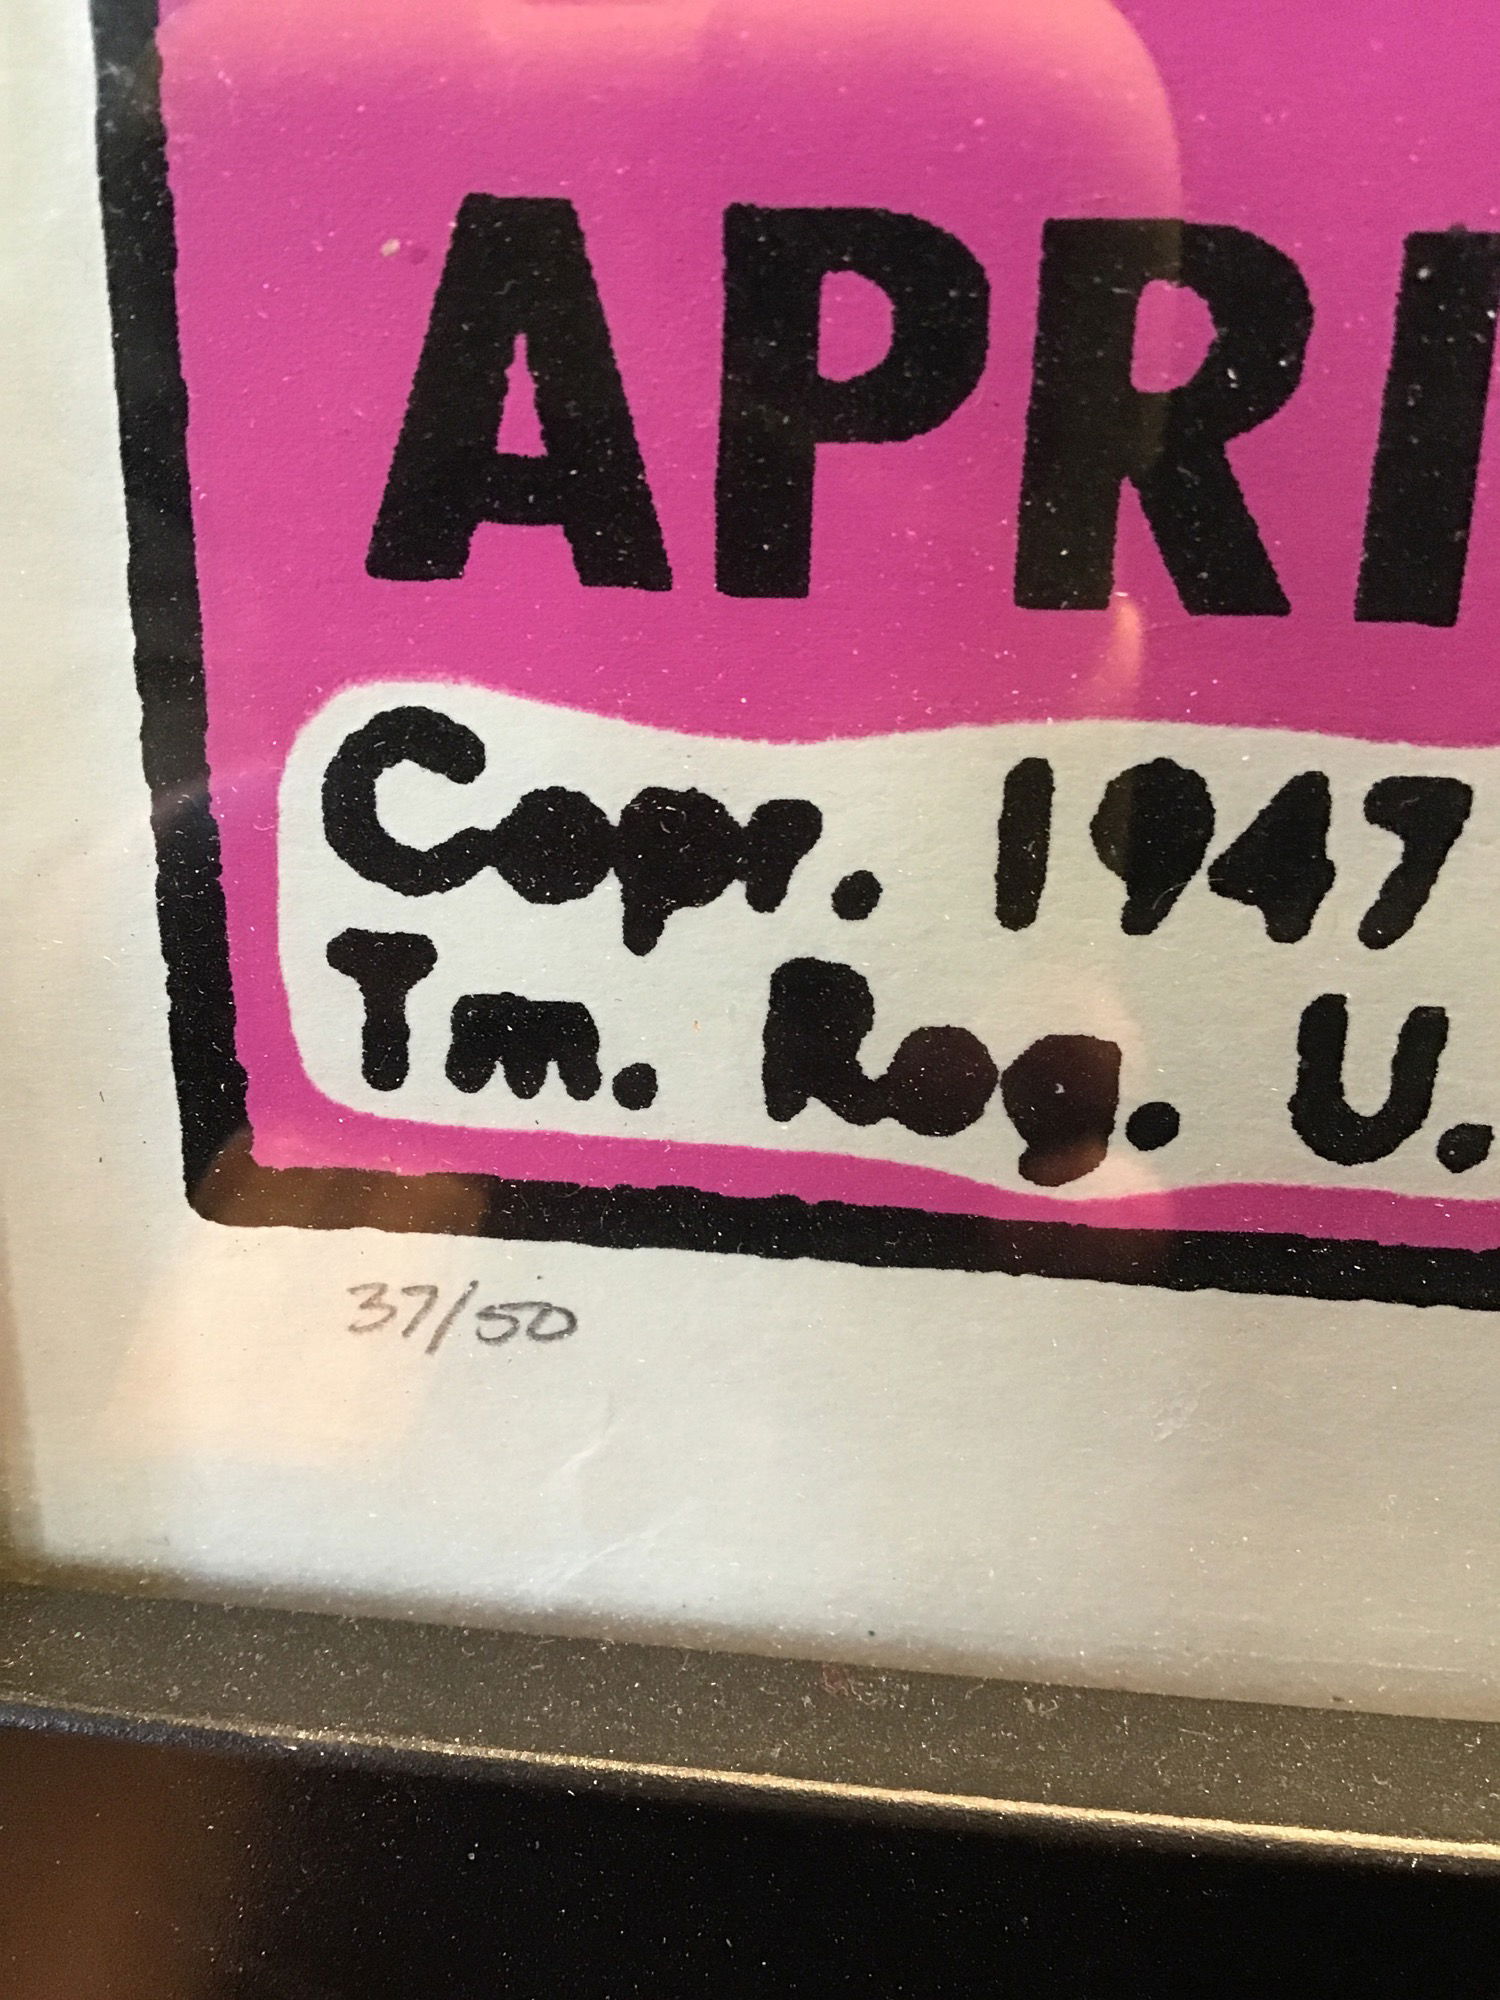 APRI
Copr. 1947
Tm. Rog. U.
37/50